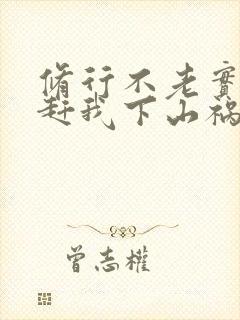 脩行不老實
赶我下山禍
曾志權